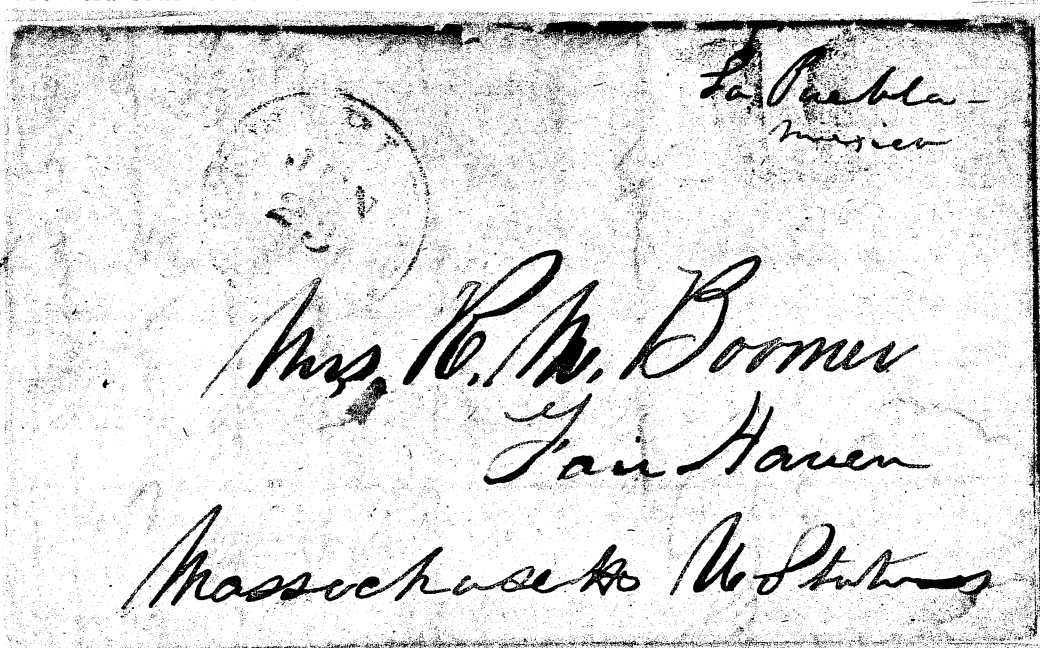 La Puebla -
Mexico
23
Mrs. R. M. Boomer
Fair Haven
Massachusetts U States